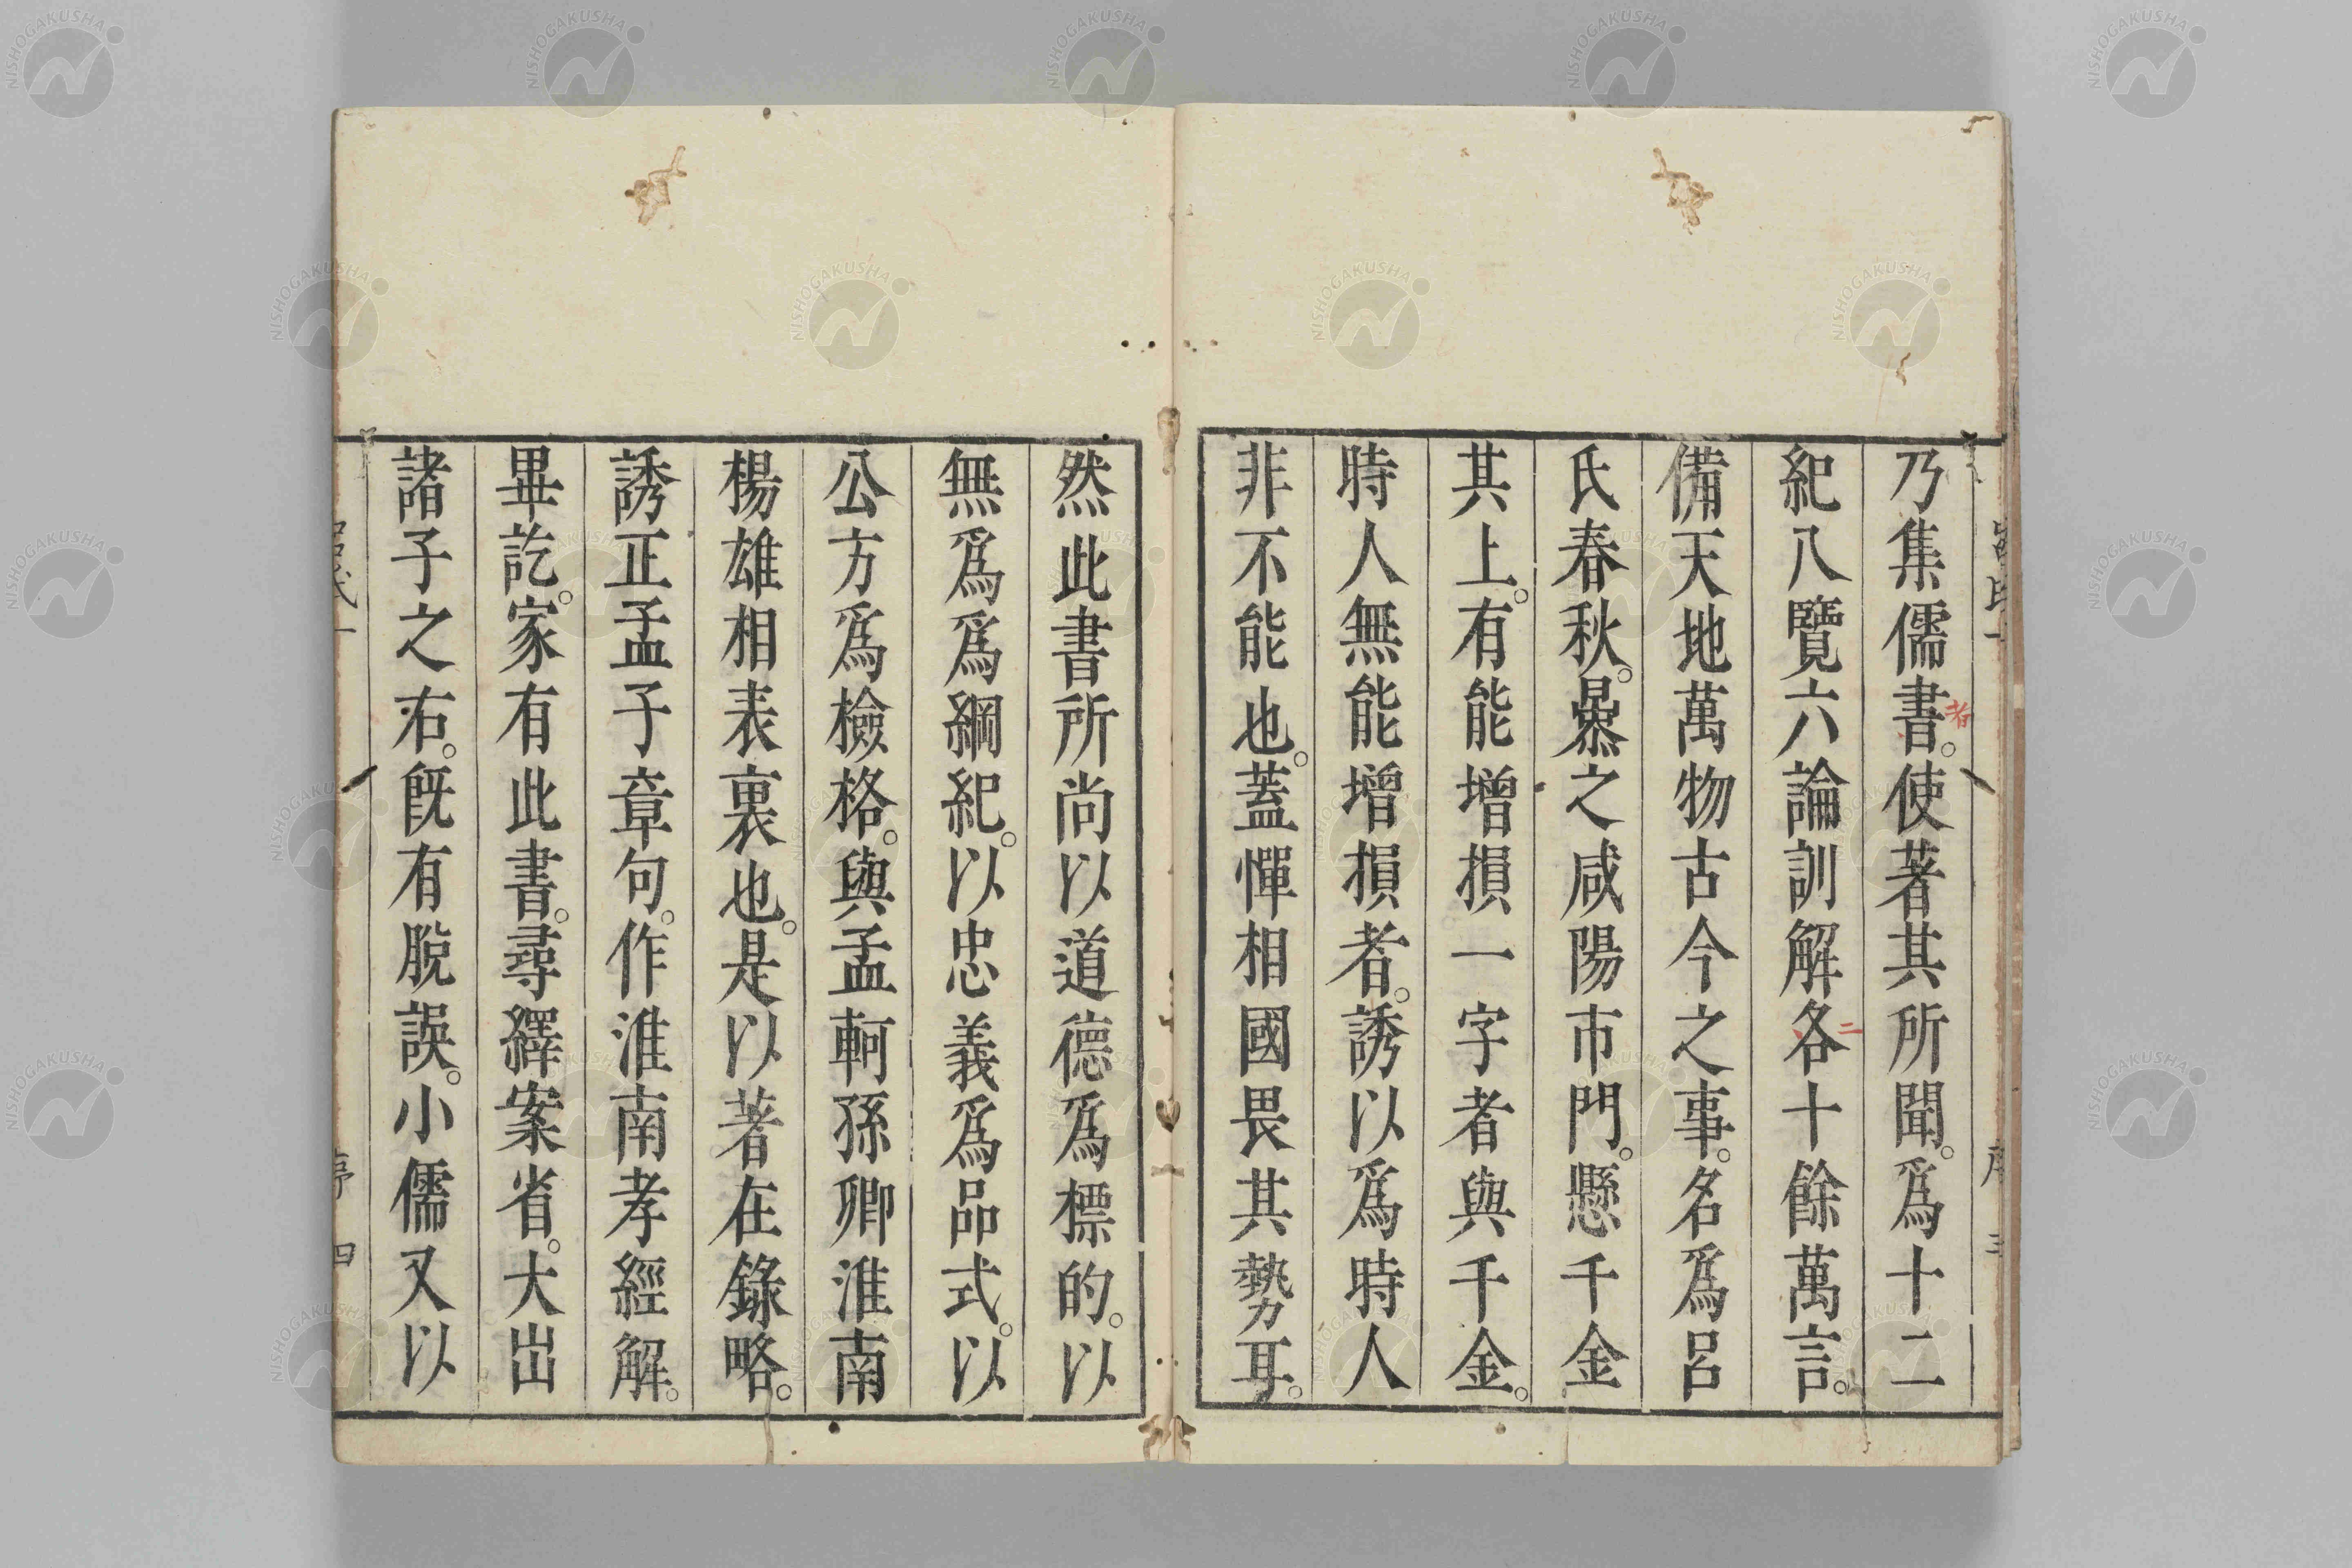 乃集儒書。使著其所聞。爲十二
者
紀八覽六論訓解各十餘萬言。
二
備天地萬物古今之事。名爲呂
氏春秋。暴之咸陽市門。懸千金
其上。有能增損一字者與千金。
時人無能增損者。誘以爲時人
非不能也。蓋憚相國畏其勢耳。
然此書所尚以道德爲標的。以
無爲爲綱紀。以忠義爲品式。以
公方爲檢格。與孟軻孫卿淮南
楊雄相表裏也。是以著在錄略。
誘正孟子章句。作淮南孝經解。
畢訖。家有此書。尋繹案省。大出
諸子之右。旣有脫誤。小儒又以
四
NISHOGAKUSHA